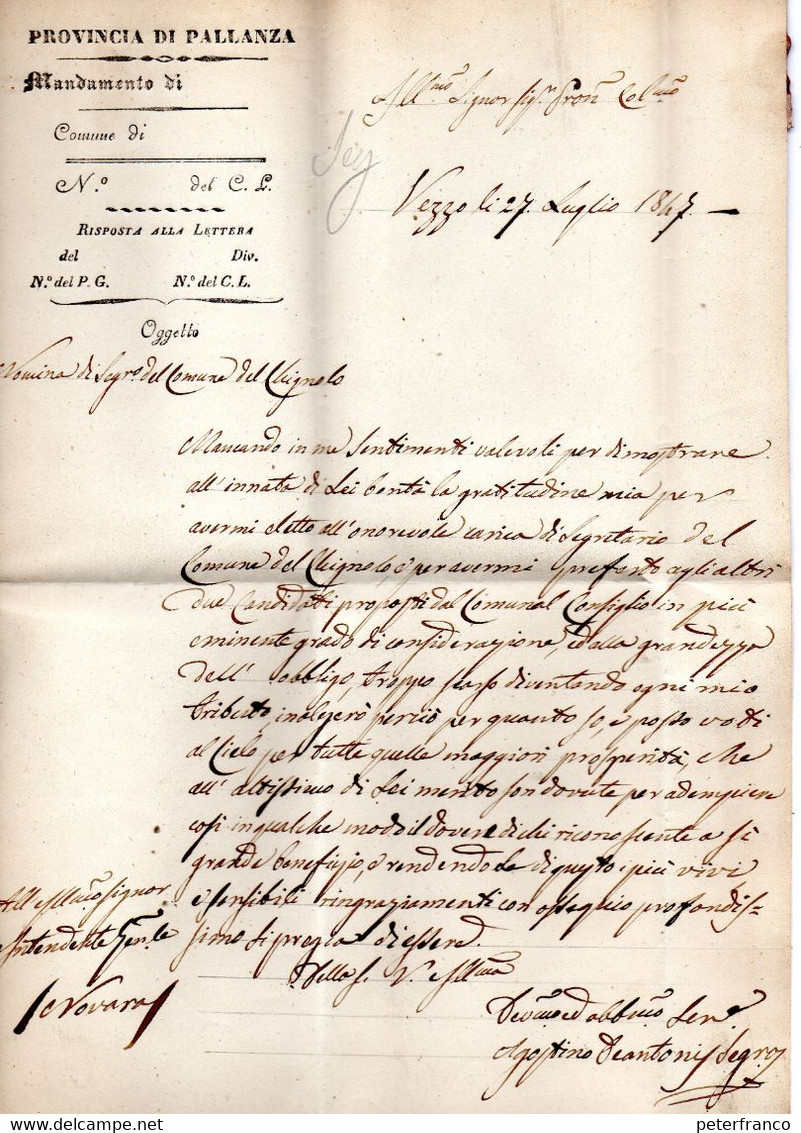 PROVINCIA DI PALLANZA
Mandamento di
Comune di
N.º del C. L.
RISPOSTA ALLA LETTERA
del Div.
N.º del P. G. N.º del C. L.
Oggetto
Nomina di Segr.º del Comune del Chignolo
Ill.mo Signor Sig.r Pron Col.mo
Vezzo li 27. Luglio 1847.
Mancando in me sentimenti valevoli per dimostrare
all'innata di Lei bontà la gratitudine mia per
avermi eletto all'onorevole carica di Segretario del
Comune del Chignolo, e per avermi preferto agli altri
due Candidati proposti dal Comunal Consiglio in più
eminente grado di considerazione, e dalla grandezza
dell' obbligo, troppo scarso diventando ogni mio
tributo, inalzerò perciò per quanto so, e posso voti
al Cielo per tutte quelle maggiori prosperità, che
all' altissimo di Lei merito son dovute per adempiere
così in qualche modo il dovere di chi riconoscente a sì
grande beneficio, e rendendole di questo i più vivi
e sensibili ringraziamenti con ossequio profondis=
simo si pregia di essere
Della S. V. Ill.ma
Dev.mo ed obb.mo Ser.e
Agostino Deantonis Segr.o
All Ill.mo Signor
Intendente Gen.le
Novara
peterfranco